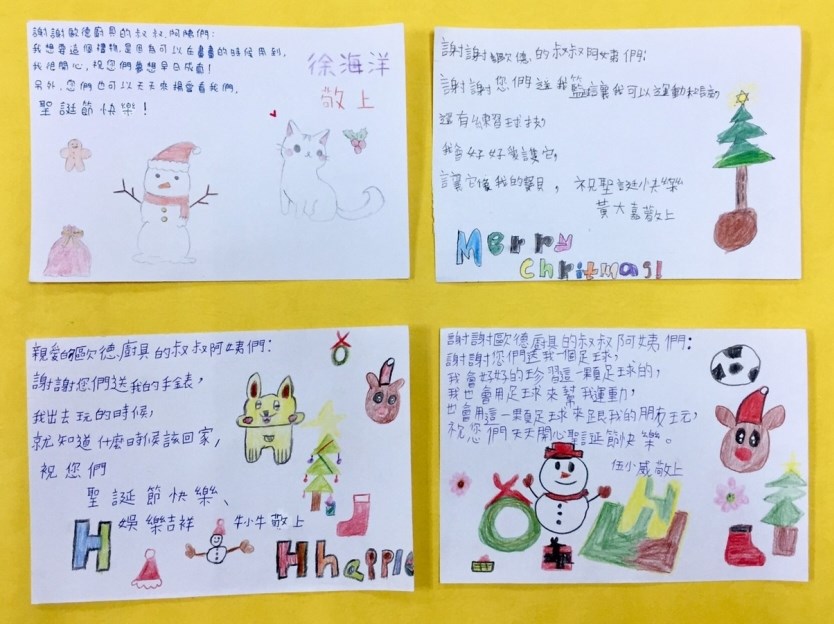 謝謝歐德廚具的叔叔、阿姨們:
我想要這個禮物,是因為可以在畫畫的時候用到,
我很開心,祝您們夢想早日成真!
另外,您們也可以天天來楊愛看我們,
聖誕節快樂!
徐海洋
敬上
謝謝歐德的叔叔阿姨們:
謝謝您們送我籃球讓我可以運動和長高
還有練習球技,
我會好好愛護它,
讓它像我的寶貝,祝聖誕快樂
黃大嘉敬上
Merry
Chritmas!
親愛的歐德廚具的叔叔阿姨們:
謝謝您們送我的手錶,
我出去玩的時候,
就知道什麼時候該回家,
祝您們
聖誕節快樂、
娛樂吉祥
牛小牛敬上
H
Hhapple
謝謝歐德廚具的叔叔阿姨們:
謝謝您們送我一個足球,
我會好好的珍習這一顆足球的,
我也會用足球來幫我運動,
也會用這一顆足球來跟我的朋友玩,
祝您們天天開心聖誕節快樂。
伍小威敬上